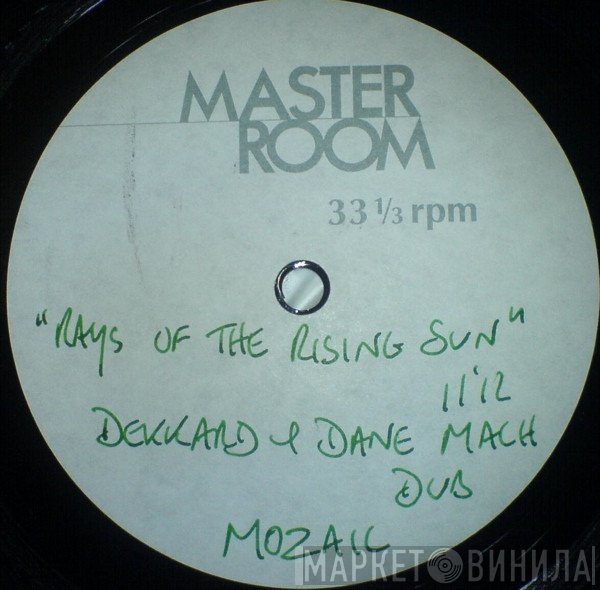 MASTER
ROOM
33 1/3 rpm
"RAYS OF THE RISING SUN"
11'12
DEKKARD & DANE MACH
DUB
MOZAIC
МАРКЕТ ВИНИЛА